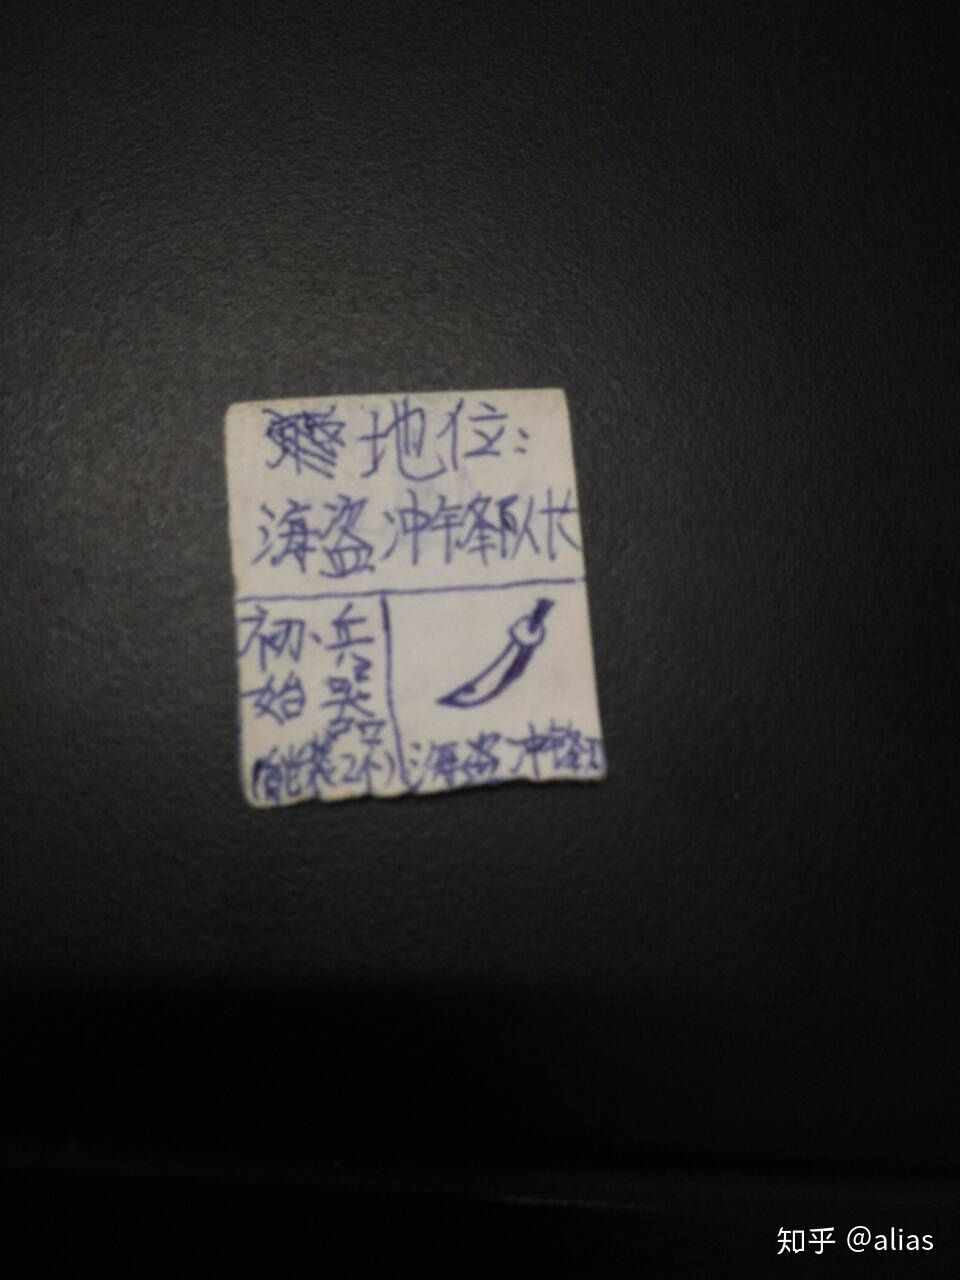 地位:
海盗冲锋队长
初始
兵器
(能装2个)
海盗冲锋刀
知乎 @alias